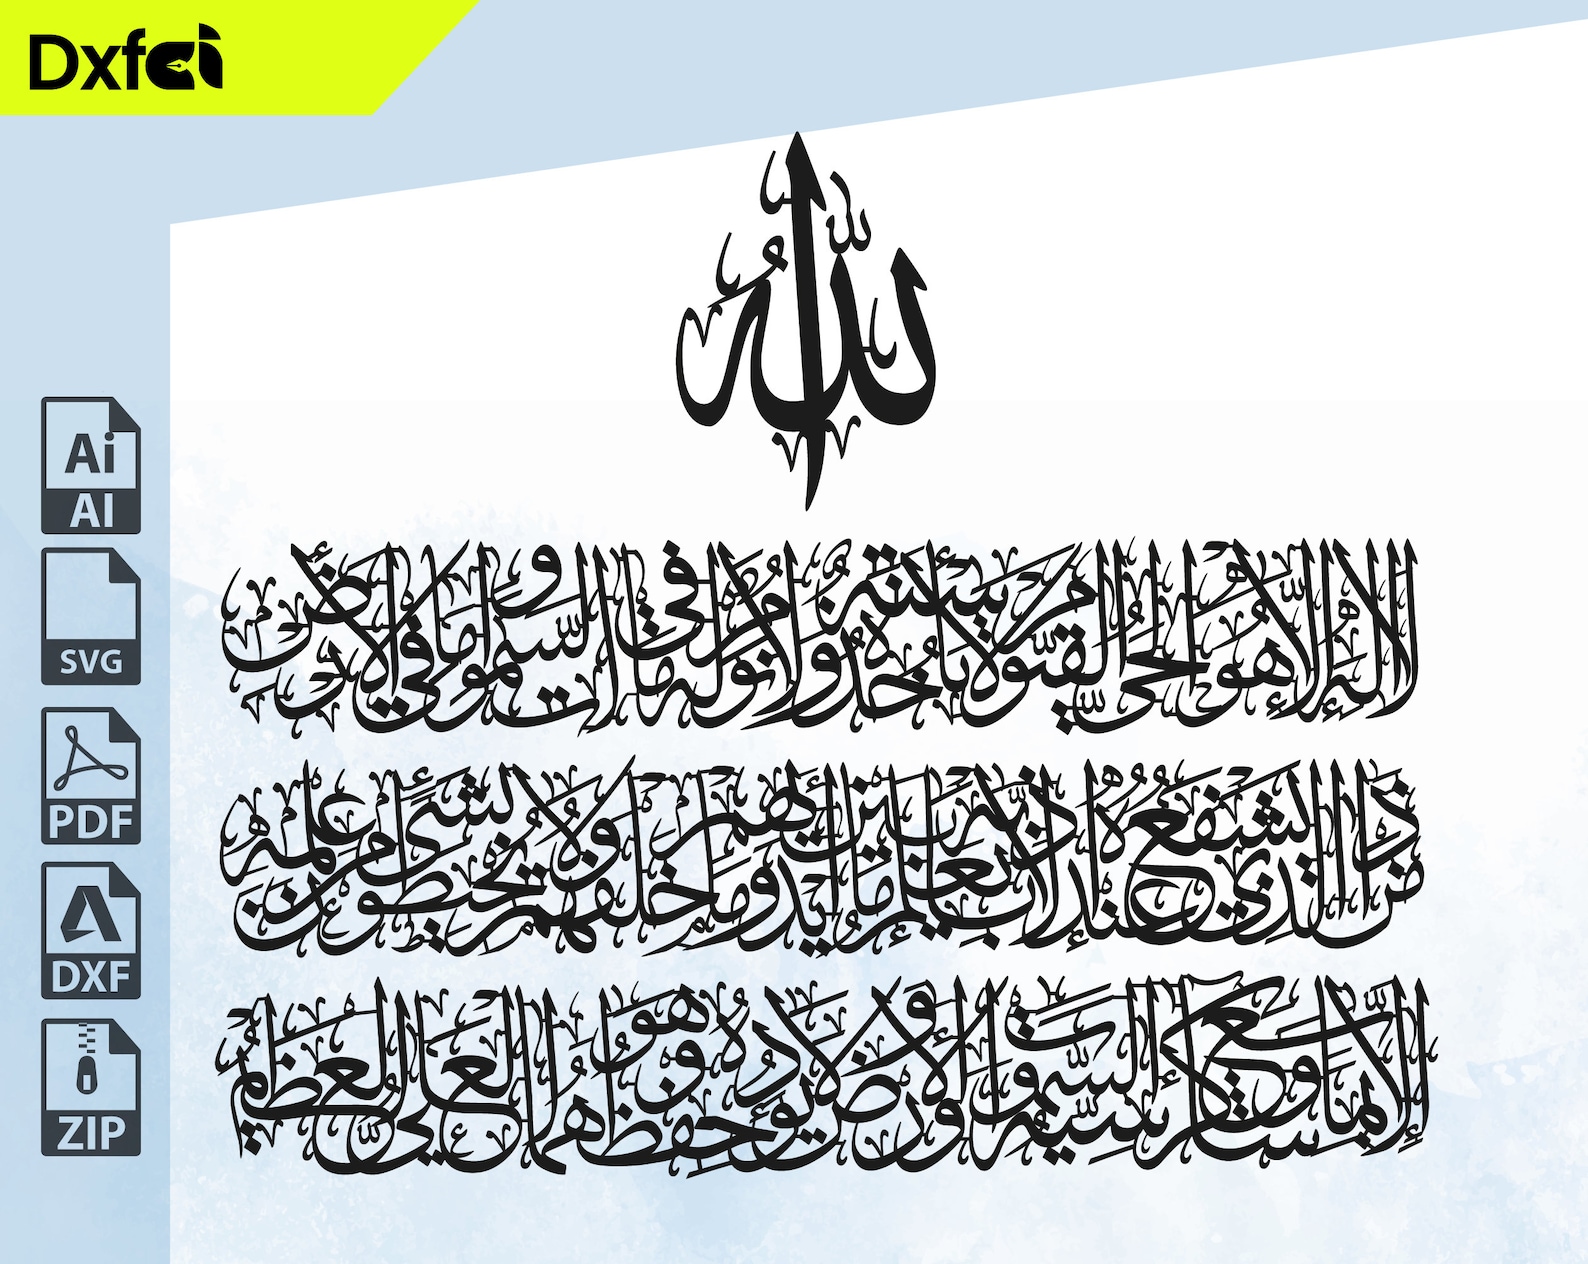 Dxfai
الله
لا إله إلا هو الحي القيوم لا تأخذه سنة ولا نوم له ما في السموات وما في الأرض
من ذا الذي يشفع عنده إلا بإذنه يعلم ما بين أيديهم وما خلفهم ولا يحيطون بشيء من علمه
إلا بما شاء وسع كرسيه السموات والأرض ولا يؤده حفظهما وهو العلي العظيم
Ai
AI
SVG
PDF
DXF
ZIP